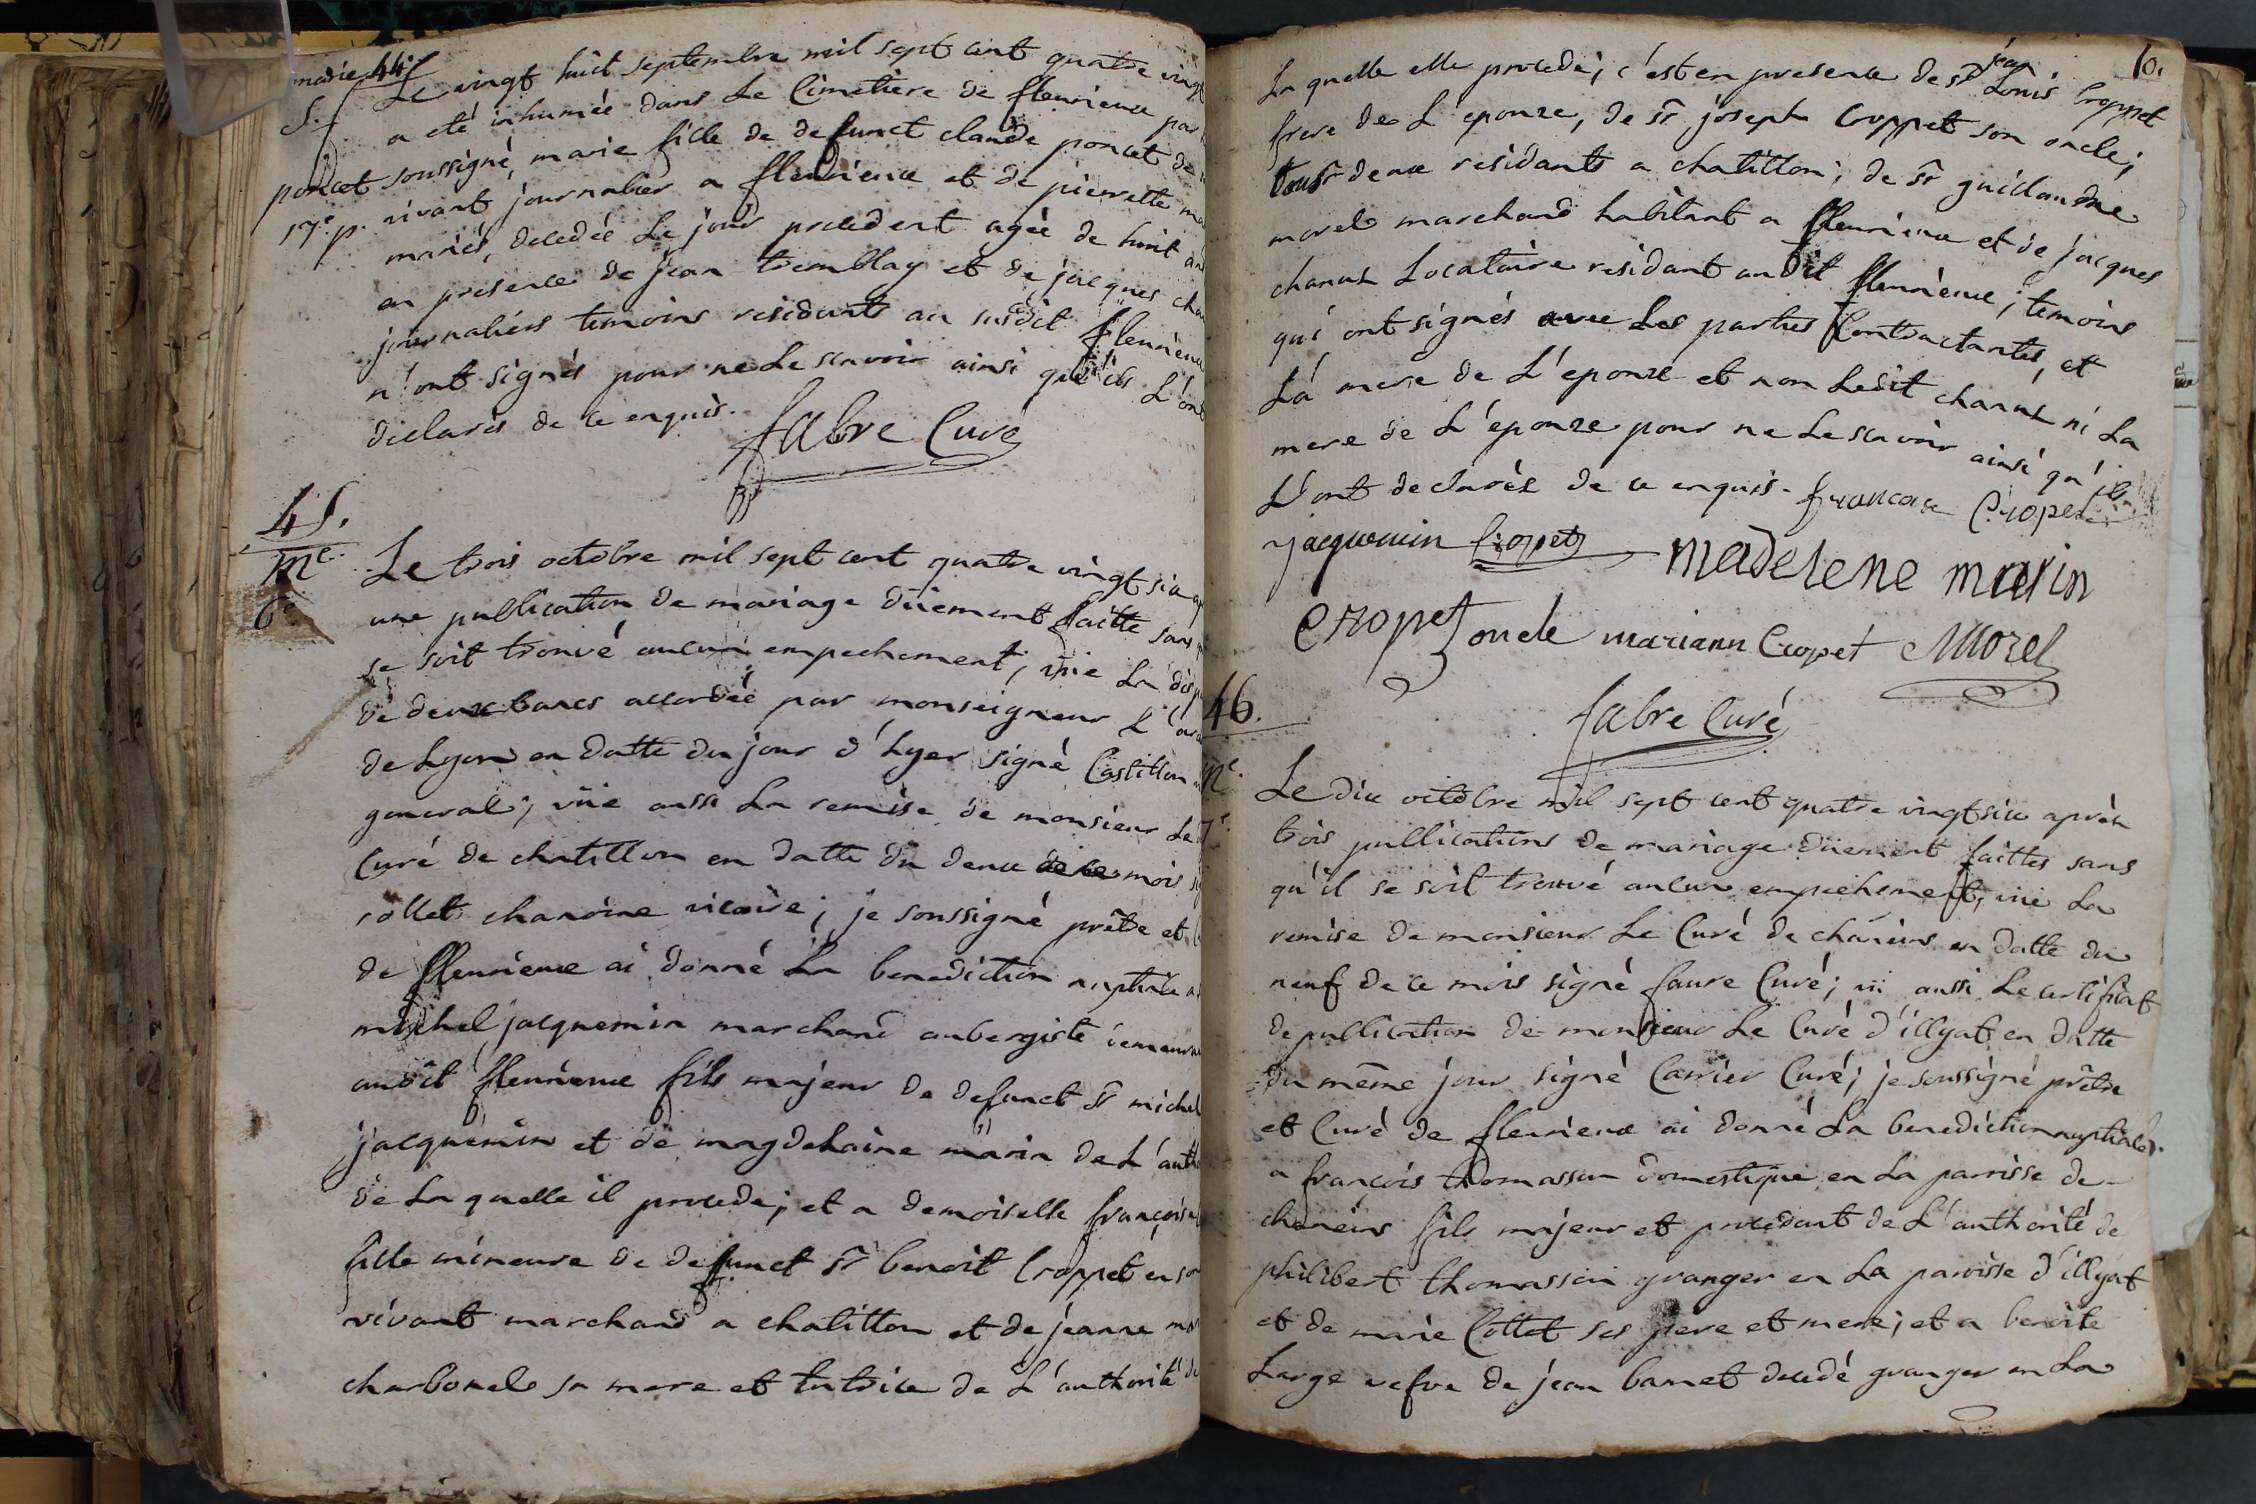 marie 44.
S.
poncet
17.e p.
Le vingt huit septembre mil sept cent quatre vingt
a eté inhumée dans Le Cimetière de fleurieux par
soussigné, marie fille de defunct claude poncet de
vivant journalier a fleurieux et de pierrette
mariés, decedée Le jour precedent agée de huit ans
en presence de jean tremblay et de jacques
journaliers temoins residents au susdit fleurieux
n'ont signés pour ne Le scavoir ainsi qu'ils L'ont
declarés de ce enquis.
fabre Curé
45.
m.e
6.e
Le trois octobre mil sept cent quatre vingt six
une publication de mariage düement faitte sans
se soit trouvé aucun empechement, vüe La
de deux bancs accordée par monseigneur
de Lyon en datte du jour d'hyer signé Castillon
general; vüe aussi La remise de monsieur Le
Curé de chatillon en datte du deux de ce mois
collet chanoine vicaire; je soussigné prêtre et
de fleurieux ai donné La benediction nuptiale
michel jacquemin marchand aubergiste
audit fleurieux fils majeur de defunct sr michel
jacquemin et de magdelaine marin de L'auth
de La quelle il procede; et a demoiselle françoise
fille mineure de defunct sr benoit Croppet en son
vivant marchand a chatillon et de jeanne
charbonel sa mere et tutrice de L'authorité de
10.
La quelle elle procede; c'est en presence de sr jean Louis Croppet
frere de L'epouze, de sr joseph Croppet son oncle;
tous deux residants a chatillon; de sr guillaume
morel marchand habitant a fleurieux et de jacques
chanut Locataire residant audit fleurieux; temoins
qui ont signés avec Les parties Contractantes, et
La mere de L'epoux et non Ledit chanut ni La
mere de L'epouze pour ne Le scavoir ainsi qu'ils
L'ont declarés de ce enquis. francoise Cropet
jacquemin Cropet madelene marin
Cropet oncle mariann Cropet Morel
fabre Curé
46.
m.e
7.e
Le dix octobre mil sept cent quatre vingt six après
trois publications de mariage düement faittes sans
qu'il se soit trouvé aucun empechement, vüe La
remise de monsieur Le Curé de chaneins en datte du
neuf de ce mois signé faure Curé; vü aussi Le certificat
de publication de monsieur Le Curé d'illyat en datte
du même jour signé Carrier Curé; je soussigné prêtre
et Curé de fleurieux ai donné La benediction nuptiale
a françois thomasson domestique en La parrisse de
chaneins fils majeur et procedant de L'authorité de
philibert thomasson granger en La paroisse d'illyat
et de marie Collet ses pere et mere; et a benoite
Large vefve de jean banet decedé granger en La